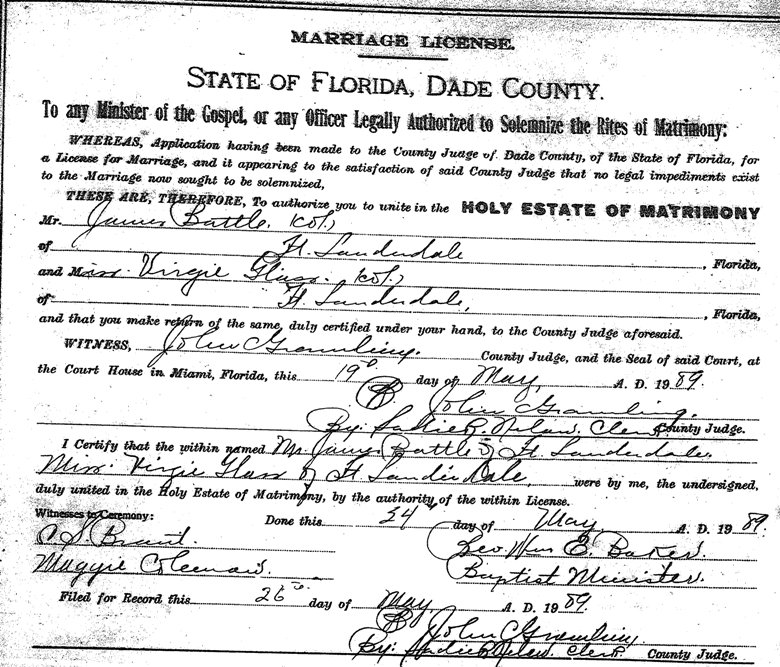 MARRIAGE LICENSE.
STATE OF FLORIDA, DADE COUNTY.
To any Minister of the Gospel, or any Officer Legally Authorized to Solemnize the Rites of Matrimony:
WHEREAS, Application having been made to the County Judge of Dade County, of the State of Florida, for
a License for Marriage, and it appearing to the satisfaction of said County Judge that no legal impediments exist
to the Marriage now sought to be solemnized,
THESE ARE, THEREFORE, To authorize you to unite in the HOLY ESTATE OF MATRIMONY
Mr. James Battle. (col.)
of Ft. Lauderdale, Florida,
and Miss. Virgie Glass. (col.)
of Ft. Lauderdale, Florida,
and that you make return of the same, duly certified under your hand, to the County Judge aforesaid.
WITNESS, John C Gramling. County Judge, and the Seal of said Court, at
the Court House in Miami, Florida, this 19 day of May, A. D. 19
John C Gramling.
By: Clerk County Judge.
I Certify that the within named Mr. James Battle of Ft Lauderdale.
Miss: Virgie Glass of Ft Lauder Dale were by me, the undersigned,
duly united in the Holy Estate of Matrimony, by the authority of the within License.
Witnesses to Ceremony: Done this 24 day of May A. D. 19
Rev Wm E.
Maggie Baptist Minister.
Filed for Record this 26 day of May A. D. 19
John C Gramling
By: Clerk County Judge.